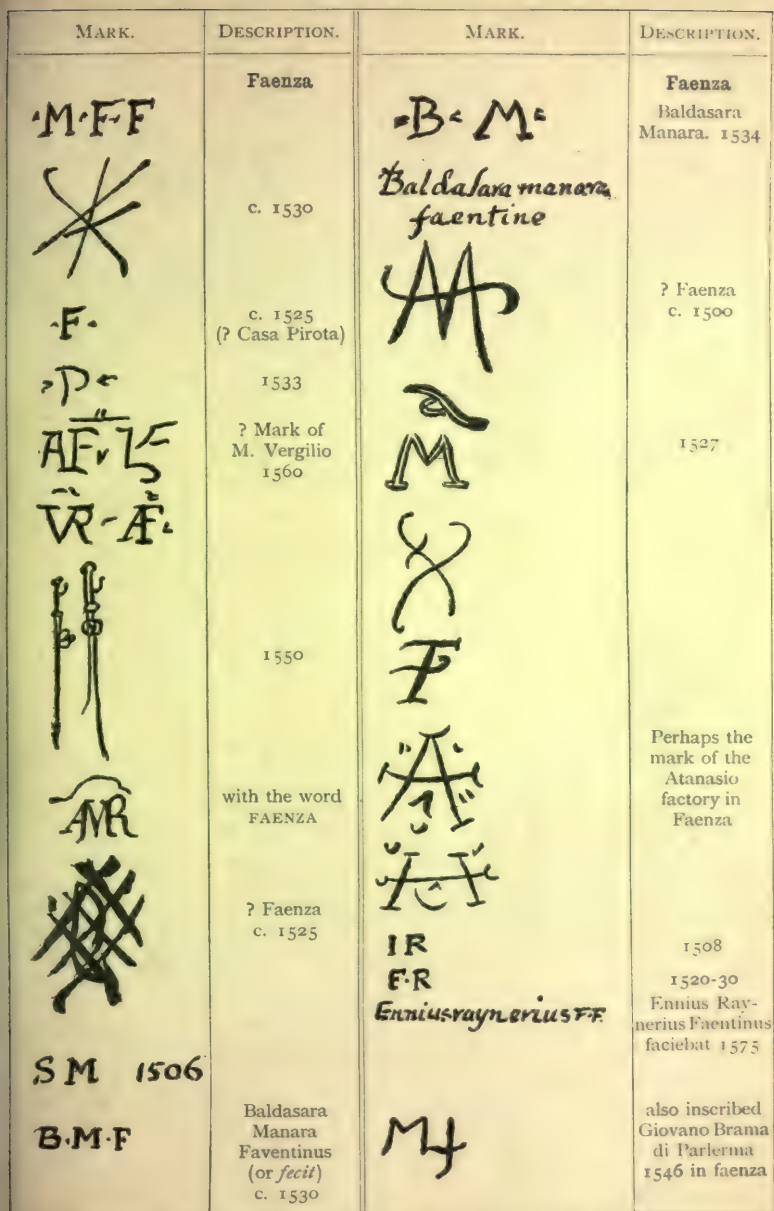 MARK.
DESCRIPTION.
Faenza
·M·F·F
c. 1530
·F·
c. 1525
(? Casa Pirota)
P
1533
? Mark of
M. Vergilio
1560
1550
with the word
FAENZA
? Faenza
c. 1525
S M 1506
B·M·F
Baldasara
Manara
Faventinus
(or fecit)
c. 1530
MARK.
DESCRIPTION.
Faenza
B M
Baldasara
Manara. 1534
Baldasara manara
faentine
? Faenza
c. 1500
M
1527
Perhaps the
mark of the
Atanasio
factory in
Faenza
I R
1508
F·R
1520-30
Enniusraynerius F.F.
Ennius Ray-
nerius Faentinus
faciebat 1575
also inscribed
Giovano Brama
di Parlerma
1546 in faenza